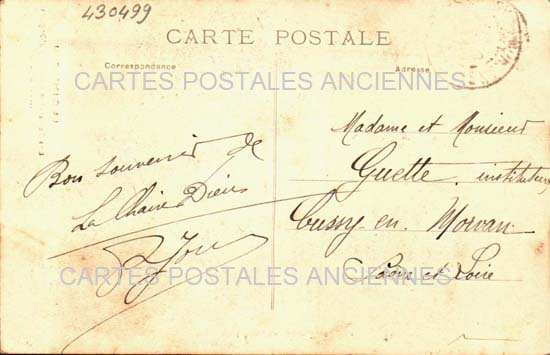 430499
CARTE POSTALE
Correspondance
Adresse
CARTES POSTALES ANCIENNES
Madame et Monsieur
Guette, instituteur
Cussy-en-Morvan
Saône et Loire
Bon souvenir de
La Chaise Dieu
CARTES POSTALES ANCIENNES